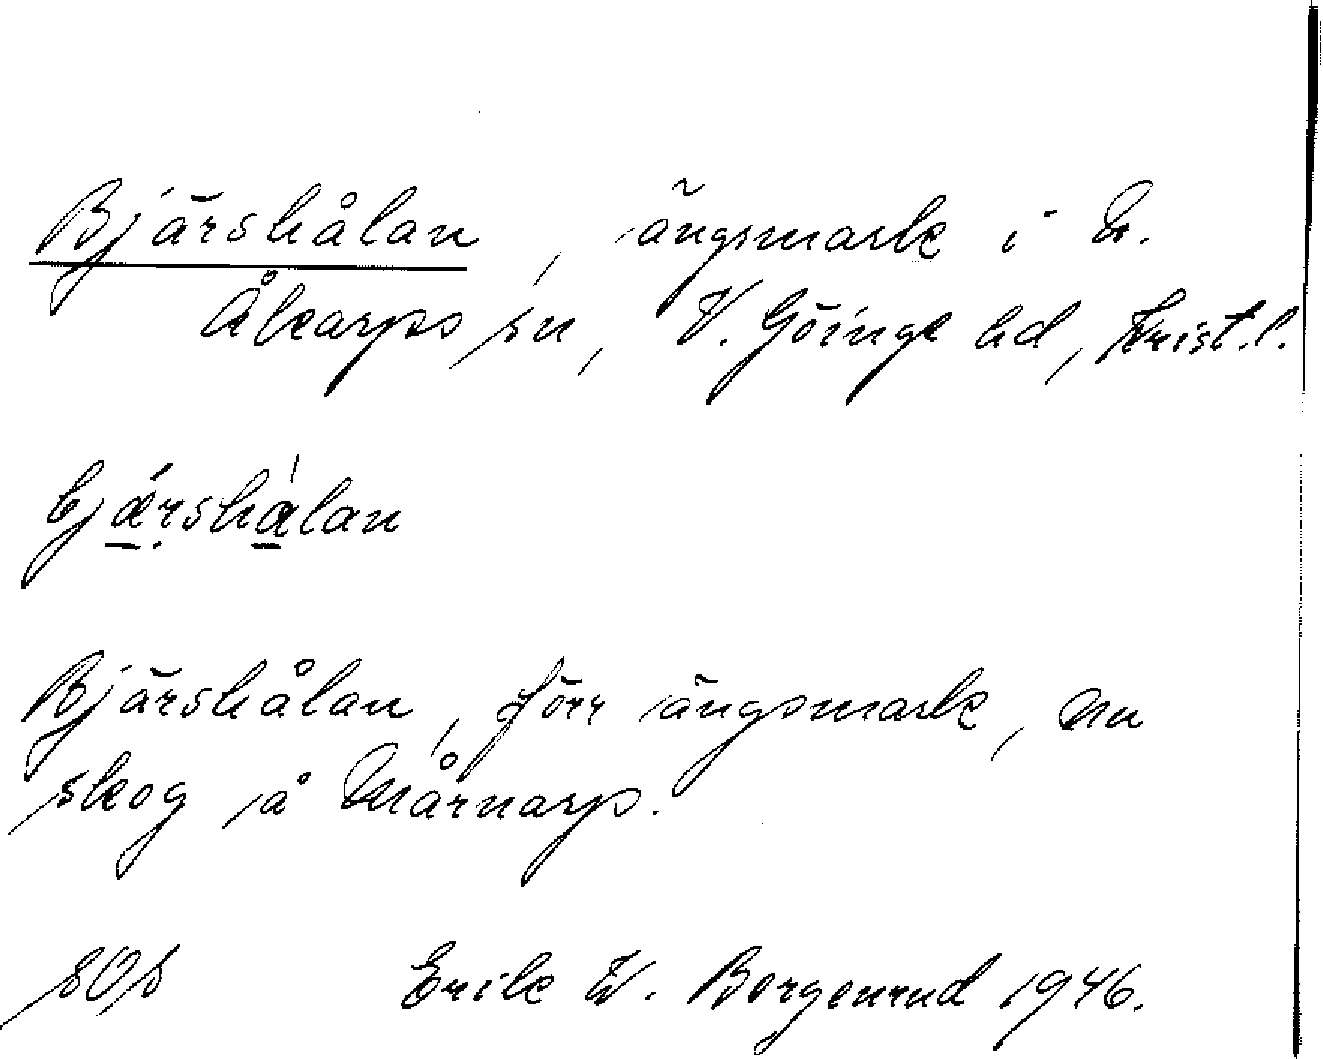 Bjärshålan, ängsmark i V.
Åkarps sn, V. Göinge hd, Krist. l.
bjærshålan
Bjärshålan, förr ängsmark, nu
skog å Mårnarp.
SOS Erik W. Borgenrud 1946.